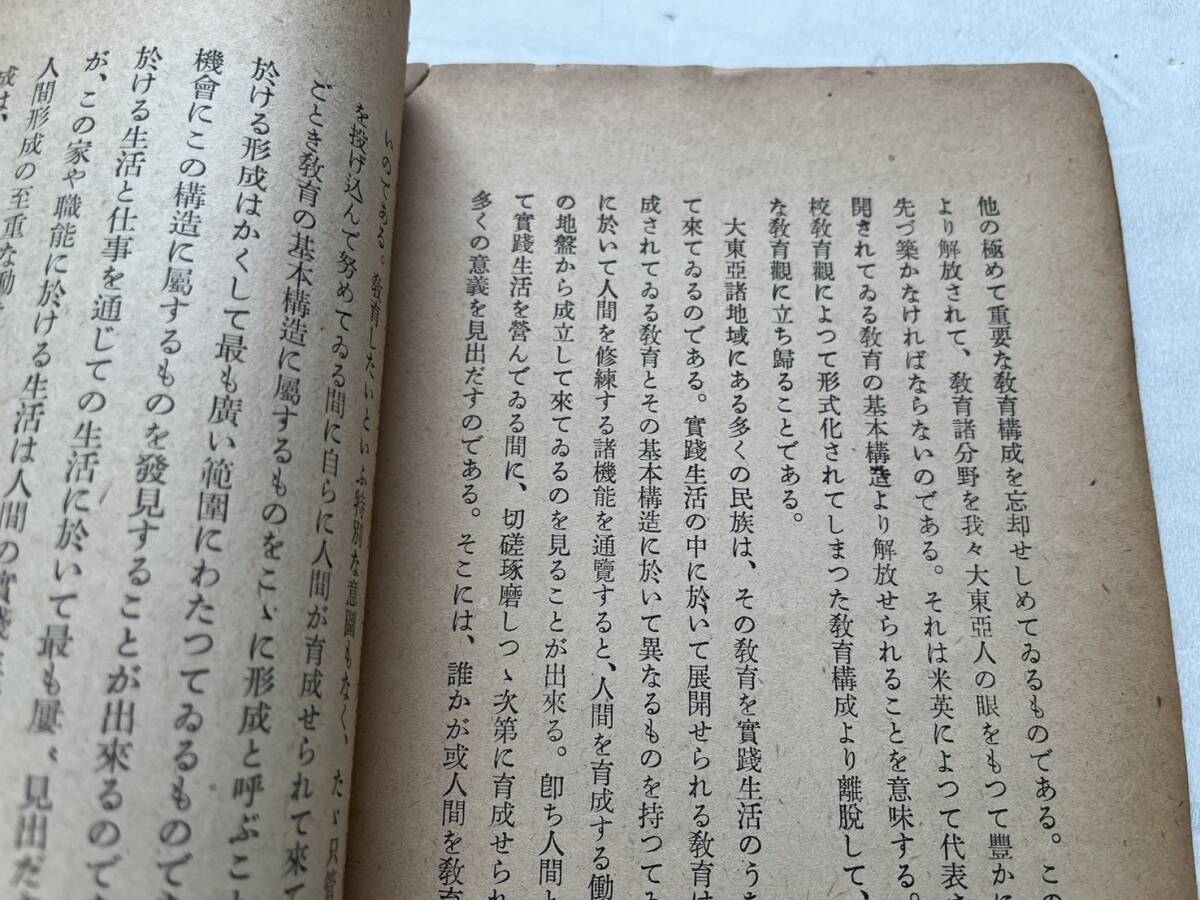 他の極めて重要な敎育構成を忘却せしめてゐるものである。この
より解放されて、敎育諸分野を我々大東亞人の眼をもつて豊かに
先づ築かなければならないのである。それは米英によつて代表さ
開されてゐる敎育の基本構造より解放せられることを意味する。
校敎育觀によつて形式化されてしまつた敎育構成より離脱して、
な敎育觀に立ち歸ることである。
大東亞諸地域にある多くの民族は、その敎育を實踐生活のうち
て來てゐるのである。實踐生活の中に於いて展開せられる敎育は
成されてゐる敎育とその基本構造に於いて異なるものを持つてゐ
に於いて人間を修練する諸機能を通覽すると、人間を育成する働
の地盤から成立して來てゐるのを見ることが出來る。卽ち人間と
て實踐生活を營んでゐる間に、切磋琢磨しつゝ次第に育成せられ
多くの意義を見出だすのである。そこには、誰かが或人間を敎育
いのである。敎育したいといふ特別な意圖もなく、たゞ只管
を投げ込んで努めてゐる間に自らに人間が育成せられて來て
ごとき敎育の基本構造に屬するものをこゝに形成と呼ぶこ
於ける形成はかくして最も廣い範圍にわたつてゐるもので
機會にこの構造に屬するものを發見することが出來るので
於ける生活と仕事を通じての生活に於いて最も屢〻見出だ
が、この家や職能に於ける生活は人間の實踐
人間形成の至重な働
成は、